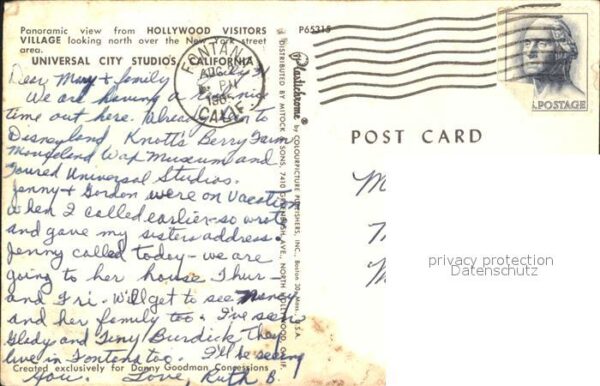 Panoramic view from HOLLYWOOD VISITORS
VILLAGE looking north over the New York street
area.
UNIVERSAL CITY STUDIOS, CALIFORNIA
P65315
Dear Mary & family
We are having a nice
time out here. Already been to
Disneyland Knott's Berry Farm
Movieland Wax Museum and
Toured Universal Studios.
Jenny & Gordon were on Vacation
when I called earlier - so wrote
and gave my sisters address.
Jenny called today - we are
going to her house Thur -
and Fri. Will get to see Nancy
and her family too. I've seen
Gladys and Tiny Burdick. They
live in Fontana too. I'll be seeing
you. Love, Ruth B.
Created exclusively for Danny Goodman Concessions
FONTANA
AUG
PM
CALIF
Plastichrome® by COLOURPICTURE PUBLISHERS, INC., Boston 30, Mass., U.S.A.
DISTRIBUTED BY MITOCK & SONS, 7410 GREENBUSH AVE., NORTH HOLLYWOOD, CALIF.
U.S. POSTAGE
POST CARD
M
M
privacy protection
Datenschutz